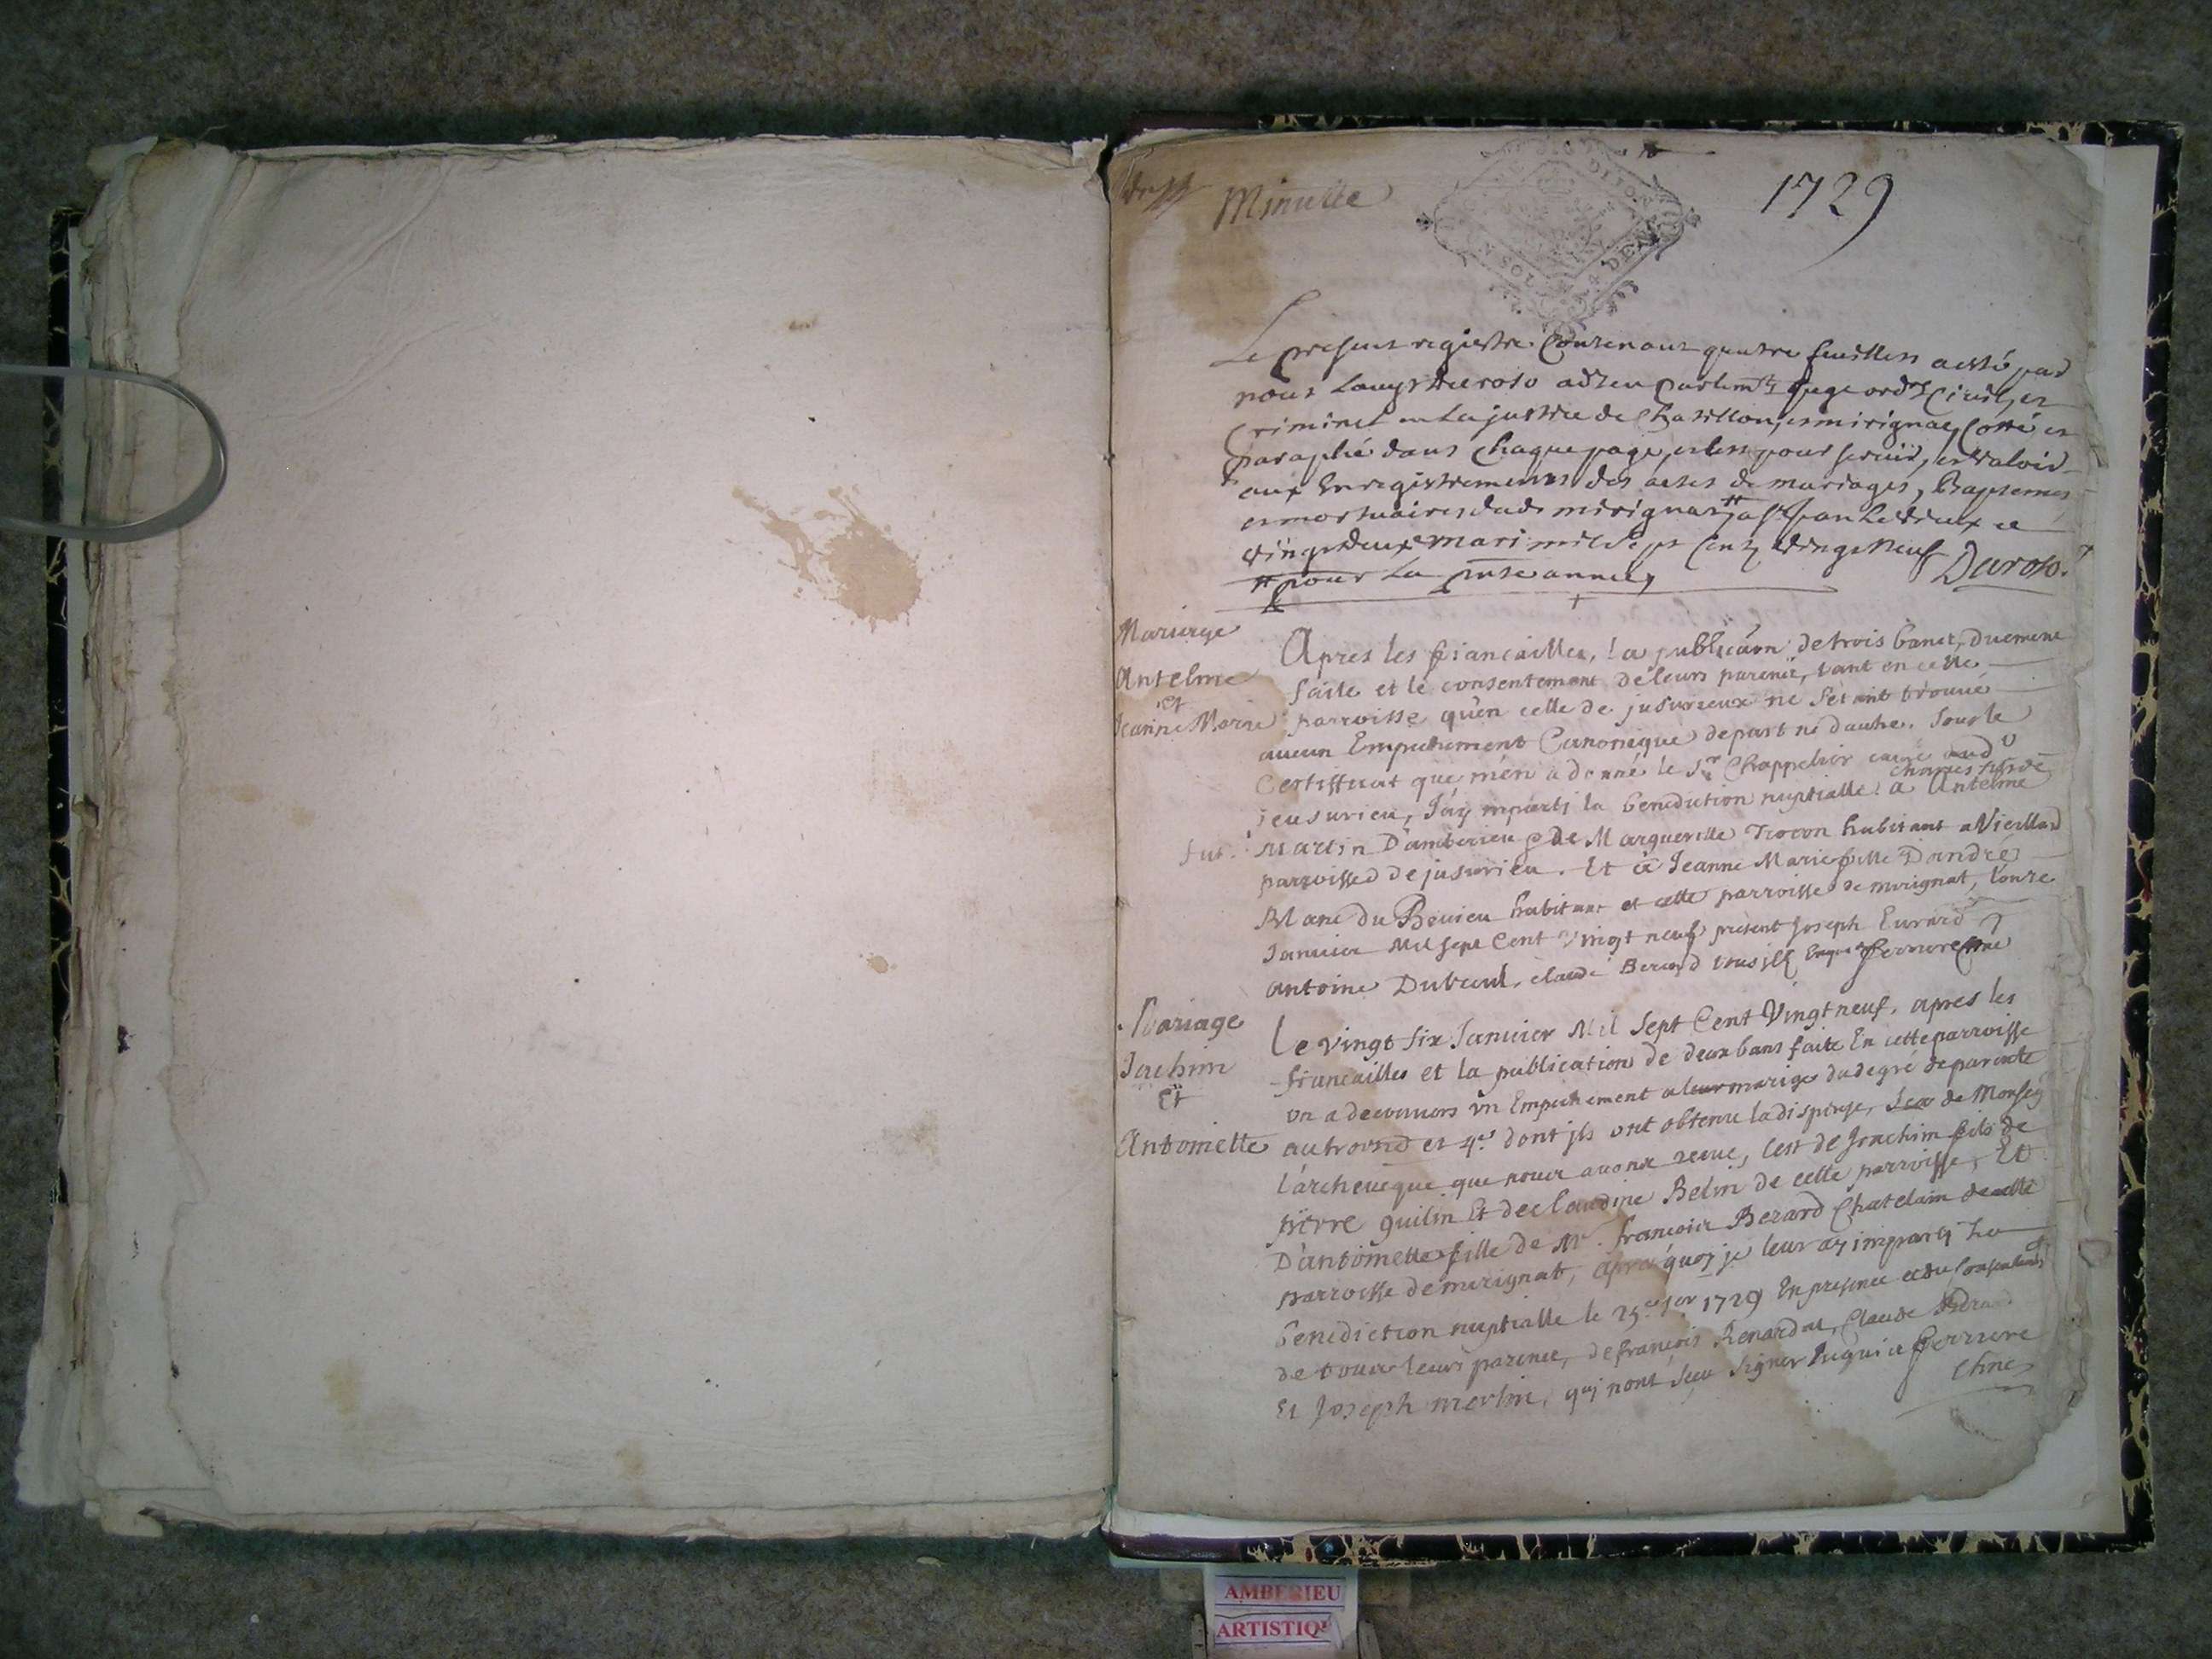 Minutte
1729
DIJON
SOL
4 DEN
Le present registre Contenant quatre feuillets a esté par
nous Louys Duroso adseu Parlemt Juge ordre Ciuil, et
Criminel en la justice de Chatillon, et mirignat, Cotté et
paraphé dans Chaque page, et ce pour seruir, et valoir
aux Enregistrements des actes de mariages, baptemes
et mortuaires dud. mirignat # a St Jean Le Vieux ce
vingt deux mars mil sept Cent vingt neuf Duroso.
# pour La pnte année,
Mariage
Antelme
et
Jeanne Marie
Apres les fiancailles, la publicaon de trois bancs, duement
faite et le consentement de leurs parents, tant en cette
parroisse qu'en celle de jusurieux ne s'etant trouué
aucun Empechement Canonique de part ni d'autre. Sous le
Certifficat que m'en a donné le Sr Chappelier curé dud
jeusurieu, J'ay imparti la benediction nuptialle a Antelme
Charles fils de
Martin D'amberieu & De Marguerille Trocon habitant a Vieillard
parroisse de jusurieu. Et a Jeanne Marie fille D'andre
Blanc du Bouieu habitant et cette parroisse de mirignat, l'onze
Januier Mil sept Cent Vingt neuf present Joseph Eurard
Antoine Dubreul, claude Berard Ferriere
Mariage
Joachim
Et
Antoinette
Le vingt six Januier Mil Sept Cent Vingt neuf. apres les
fiancailles et la publication de deux bans faite En cette parroisse
on a decouuers un Empechement a leur mariage du degré de parenté
au troisie et 4e dont jls ont obtenu la dispense, de Monseg
l'archeueque que nous auons receue, C'est de Joachim fils de
pierre guilin Et de Claudine Belin de cette parroisse, Et
D'antoinette fille de Mr. francois Berard Chatelain de cette
parroisse de mirignat, apres quoy je leur ay imparti La
benediction nuptialle le 25e 1729 En presence et du Consentement
de tous leurs parents, de francois Renardat, Claude Berard
Et Joseph merlin, qui n'ont sceu signer Ferriere
AMBERIEU
ARTISTIQU